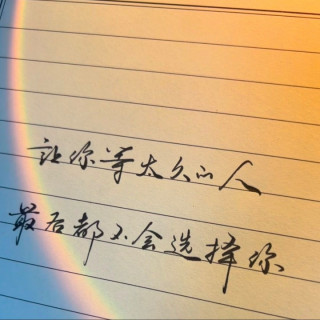 让你等太久的人
最后都不会选择你